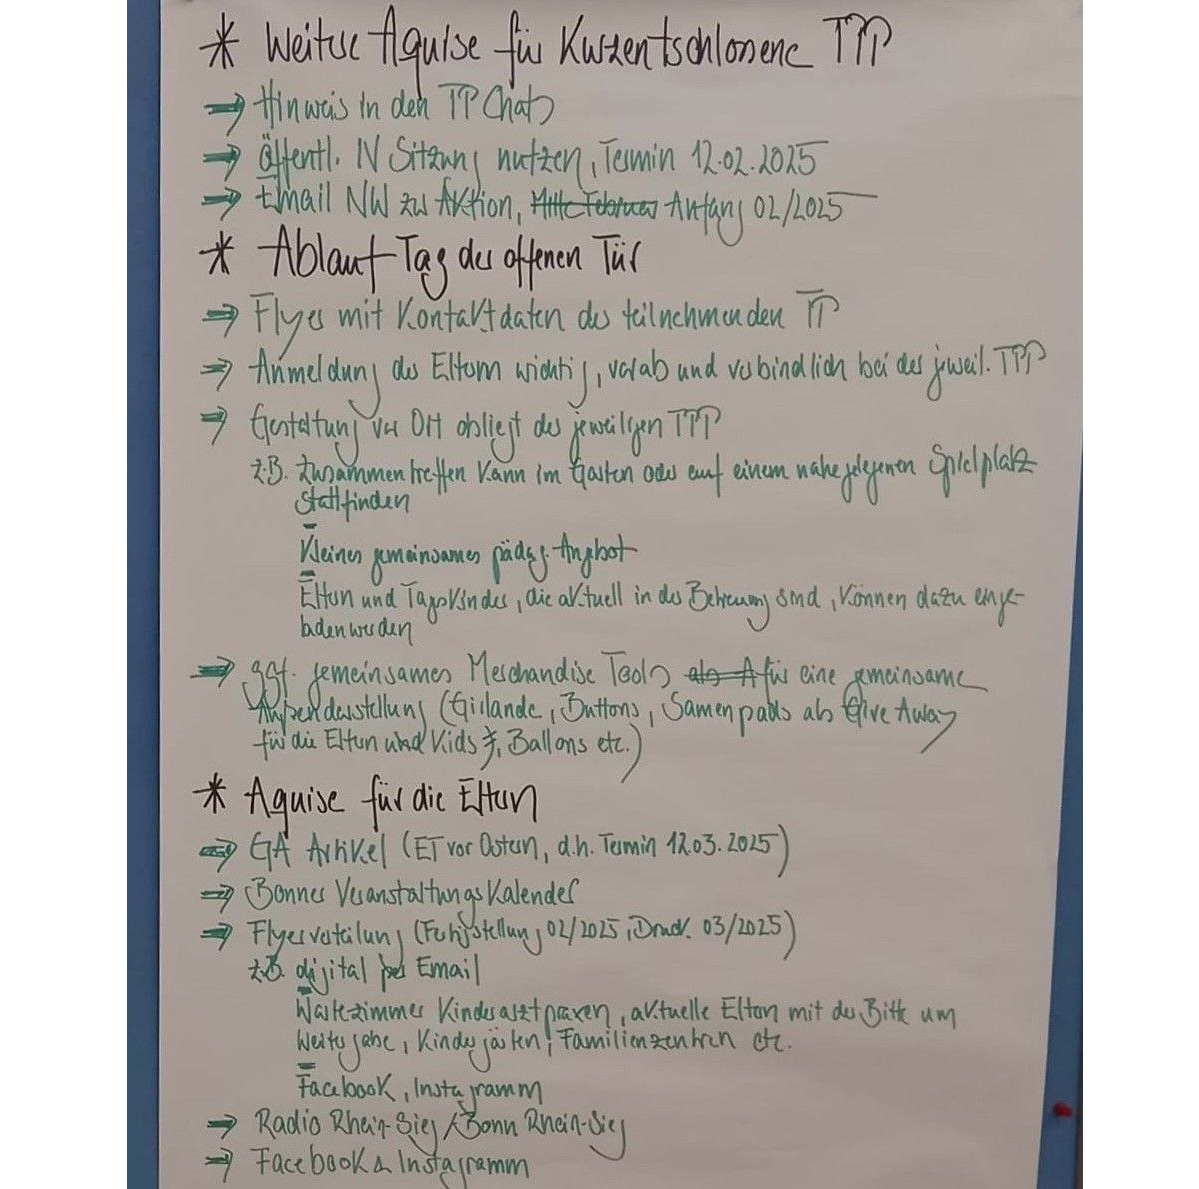 * Weitere Aquise für Kurzentschlossene TPP
→ Hinweis in den TP Chats
→ Öffentl. NW Sitzung nutzen, Termin 12.02.2025
→ Email NW zur Aktion, Mitte Februar Anfang 02/2025
* Ablauf Tag der offenen Tür
→ Flyer mit Kontaktdaten der teilnehmenden TP
→ Anmeldung der Eltern wichtig, vorab und verbindlich bei der jeweil. TPP
→ Gestaltung vor Ort obliegt der jeweiligen TPP
z.B. Zusammentreffen kann im Garten oder auf einem nahegelegenen Spielplatz
stattfinden
- Kleines gemeinsames pädag. Angebot
- Eltern und Tageskinder, die aktuell in der Betreuung sind, können dazu einge-
laden werden
→ ggf. gemeinsames Merchandise Tools als A für eine gemeinsame
Außendarstellung (Girlande, Buttons, Samenpads als Give Away
für die Eltern und Kids, Ballons etc.)
* Aquise für die Eltern
→ GA Artikel (ET vor Ostern, d.h. Termin 12.03.2025)
→ Bonner Veranstaltungskalender
→ Flyerverteilung (Fertigstellung 02/2025, Druck 03/2025)
z.B. digital per Email
- Wartezimmer Kinderarztpraxen, aktuelle Eltern mit der Bitte um
Weitergabe, Kindergärten, Familienzentren etc.
- Facebook, Instagramm
→ Radio Rhein-Sieg / Bonn Rhein-Sieg
→ Facebook & Instagramm